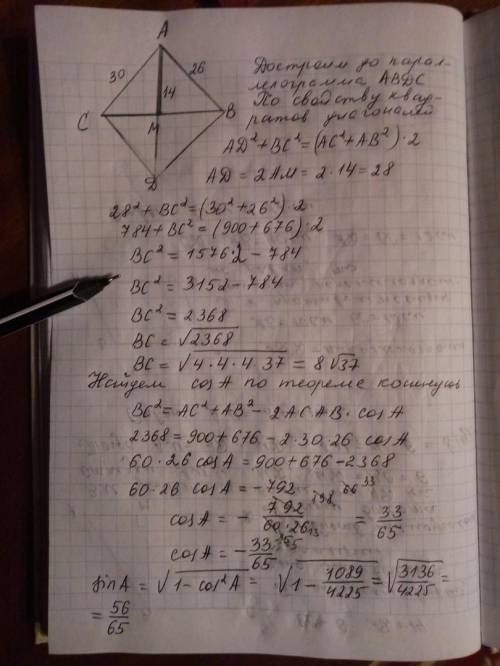 A
30
26
14
C
B
M
D
Достроим до парал-
лелограмма ABDC
По свойству квад-
ратов диагоналей
AD² + BC² = (AC² + AB²) · 2
AD = 2AM = 2 · 14 = 28
28² + BC² = (30² + 26²) · 2
784 + BC² = (900 + 676) · 2
BC² = 1576 · 2 − 784
BC² = 3152 − 784
BC² = 2368
BC = √2368
BC = √4 · 4 · 4 · 37 = 8√37
Найдем cos A по теореме косинусов
BC² = AC² + AB² − 2 AC AB · cos A
2368 = 900 + 676 − 2 · 30 · 26 cos A
60 · 26 cos A = 900 + 676 − 2368
60 · 26 cos A = −792
cos A = − 792/60·26 = 33/65
cos A = − 33/65
sin A = √1 − cos² A = √1 − 1089/4225 = √3136/4225 =
= 56/65